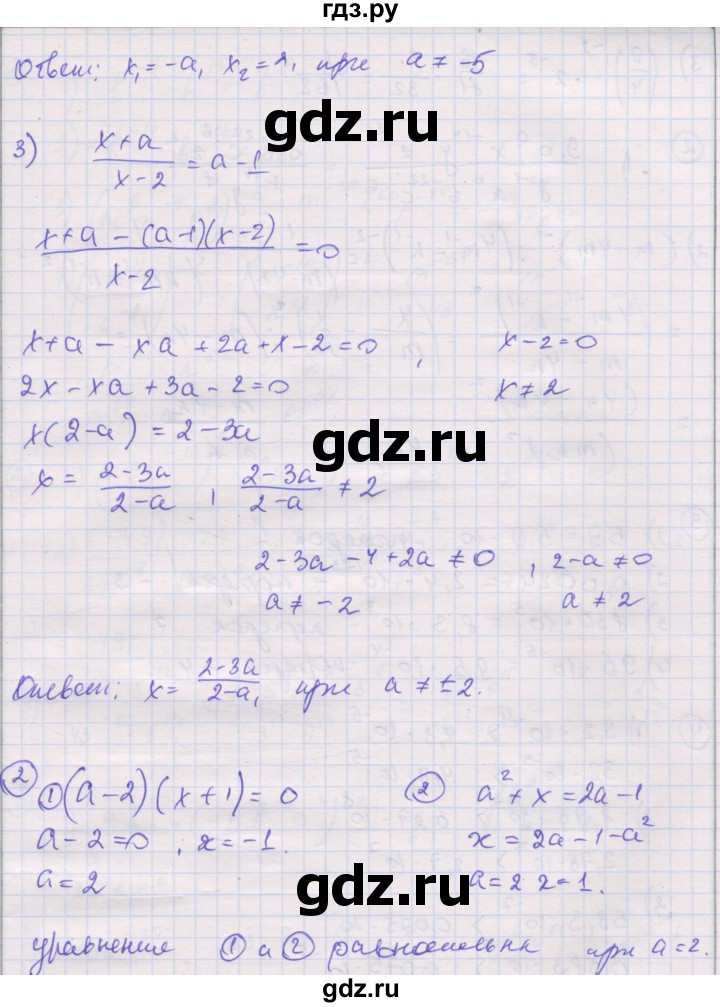 гдз.ру
Ответ: x₁ = -a, x₂ = 2, при a ≠ -5
3) (x+a)/(x-2) = a-1
(x+a-(a-1)(x-2))/(x-2) = 0
x+a-xa+2a+x-2=0, x-2=0
2x-xa+3a-2=0 x≠2
x(2-a)=2-3a
x = (2-3a)/(2-a), (2-3a)/(2-a) ≠ 2
2-3a-4+2a≠0, 2-a≠0
a≠-2 a≠2
Ответ: x = (2-3a)/(2-a), при a ≠ ±2.
② ① (a-2)(x+1)=0 ② a²+x=2a-1
a-2=0, x=-1. x=2a-1-a²
a=2 a=2 x=1.
уравнение ① и ② равносильны при a=2.
гдз.ру